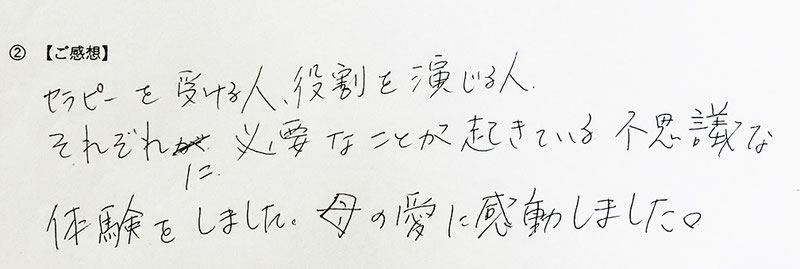 ② 【ご感想】
セラピーを受ける人、役割を演じる人、
それぞれに必要なことが起きている不思議な
体験をしました。母の愛に感動しました。